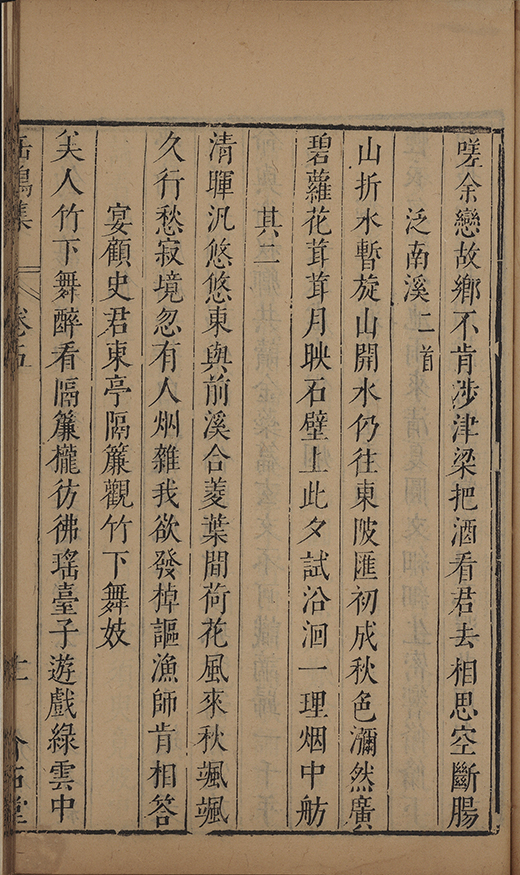 嗟余戀故鄉不肯涉津梁把酒看君去相思空斷腸
泛南溪二首
山折水暫旋山開水仍往東陂匯初成秋色瀰然廣
碧蘿花茸茸月映石壁上此夕試沿洄一理烟中舫
其二
清暉汎悠悠東與前溪合菱葉間荷花風來秋颯颯
久行愁寂境忽有人烟雜我欲發棹謳漁師肯相答
宴顧史君東亭隔簾觀竹下舞妓
美人竹下舞醉看隔簾櫳彷彿瑤臺子遊戲綠雲中
集 卷五 十二 介石堂